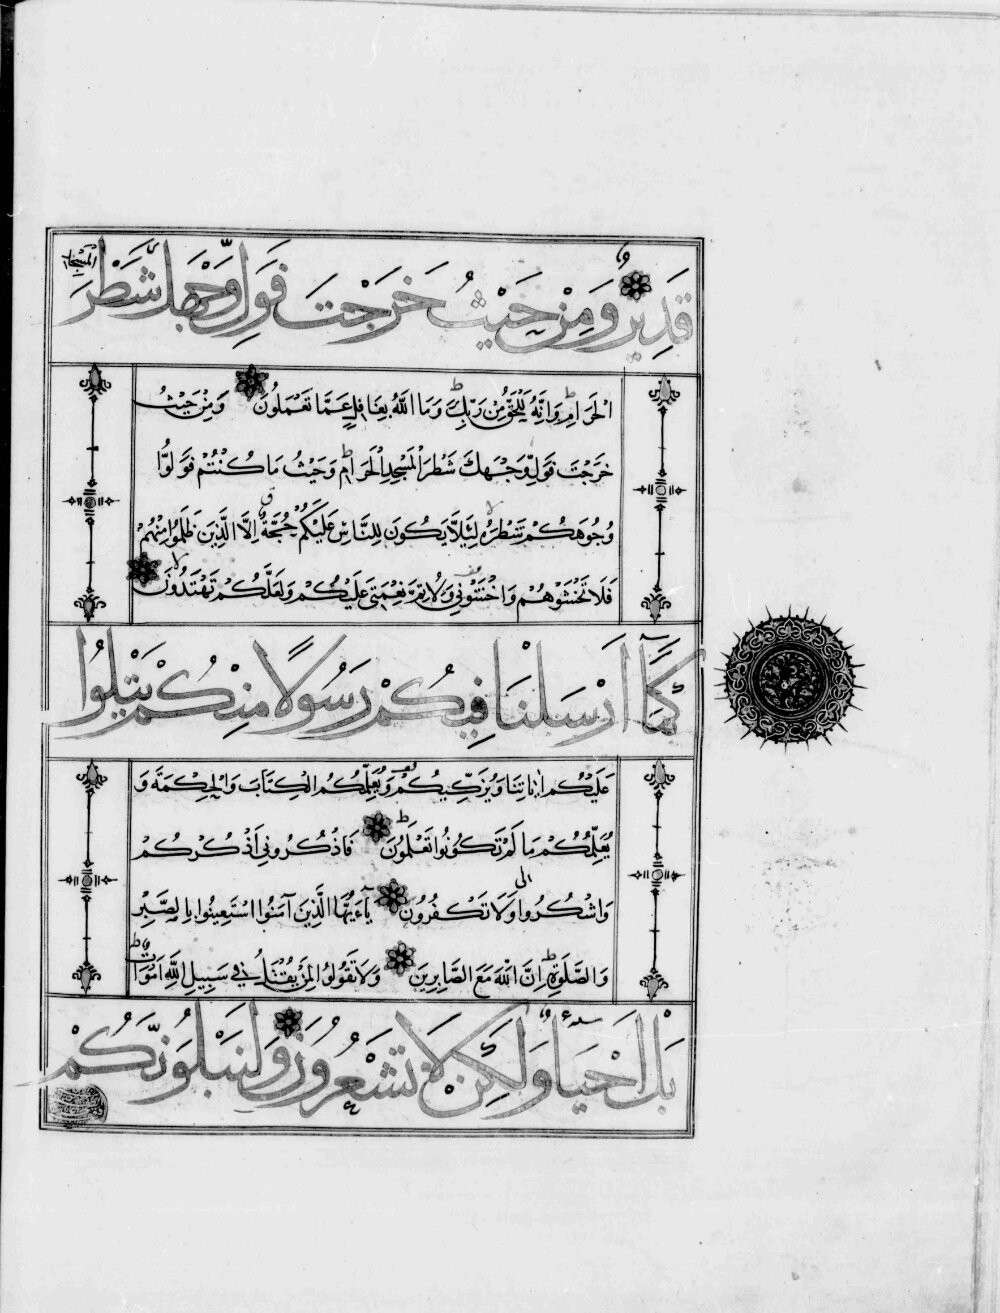 قَدِيرٌ وَمِنْ حَيْثُ خَرَجْتَ فَوَلِّ وَجْهَكَ شَطْرَ المَسْجِدِ
الْحَرَامِ وَاِنَّهُ لَلْحَقُّ مِنْ رَبِّكَ وَمَا اللَّهُ بِغَافِلٍ عَمَّا تَعْمَلُونَ وَمِنْ حَيْثُ
خَرَجْتَ فَوَلِّ وَجْهَكَ شَطْرَ الْمَسْجِدِ الْحَرَامِ وَحَيْثُ مَا كُنْتُمْ فَوَلُّوا
وُجُوهَكُمْ شَطْرَهُ لِئَلَّا يَكُونَ لِلنَّاسِ عَلَيْكُمْ حُجَّةٌ اِلَّا الَّذِينَ ظَلَمُوا مِنْهُمْ
فَلَا تَخْشَوْهُمْ وَاخْشَوْنِي وَلِأُتِمَّ نِعْمَتِي عَلَيْكُمْ وَلَعَلَّكُمْ تَهْتَدُونَ
كَمَآ اَرْسَلْنَا فِيكُمْ رَسُولًا مِنْكُمْ يَتْلُوا
عَلَيْكُمْ اٰيَاتِنَا وَيُزَكِّيكُمْ وَيُعَلِّمُكُمُ الْكِتَابَ وَالْحِكْمَةَ وَ
يُعَلِّمُكُمْ مَا لَمْ تَكُونُوا تَعْلَمُونَ فَاذْكُرُونِي اَذْكُرْكُمْ
وَاشْكُرُوا لِي وَلَا تَكْفُرُونِ يَآءَيُّهَا الَّذِينَ آمَنُوا اسْتَعِينُوا بِالصَّبْرِ
وَالصَّلَوةِ اِنَّ اللَّهَ مَعَ الصَّابِرِينَ وَلَا تَقُولُوا لِمَنْ يُقْتَلُ فِي سَبِيلِ اللَّهِ اَمْوَاتٌ
بَلْ اَحْيَاءٌ وَلَكِنْ لَا تَشْعُرُونَ وَلَنَبْلُوَنَّكُمْ